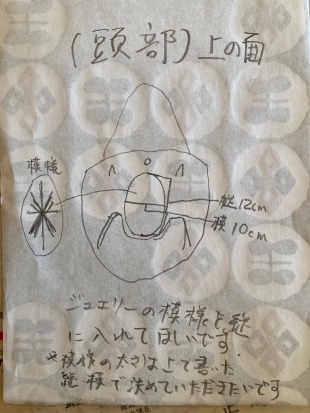 (頭部)上の面
模様
縦12cm
横10cm
ジュエリーの模様を縦
に入れてほしいです
※模様の太さは上で書いた
縦横で決めていただきたいです